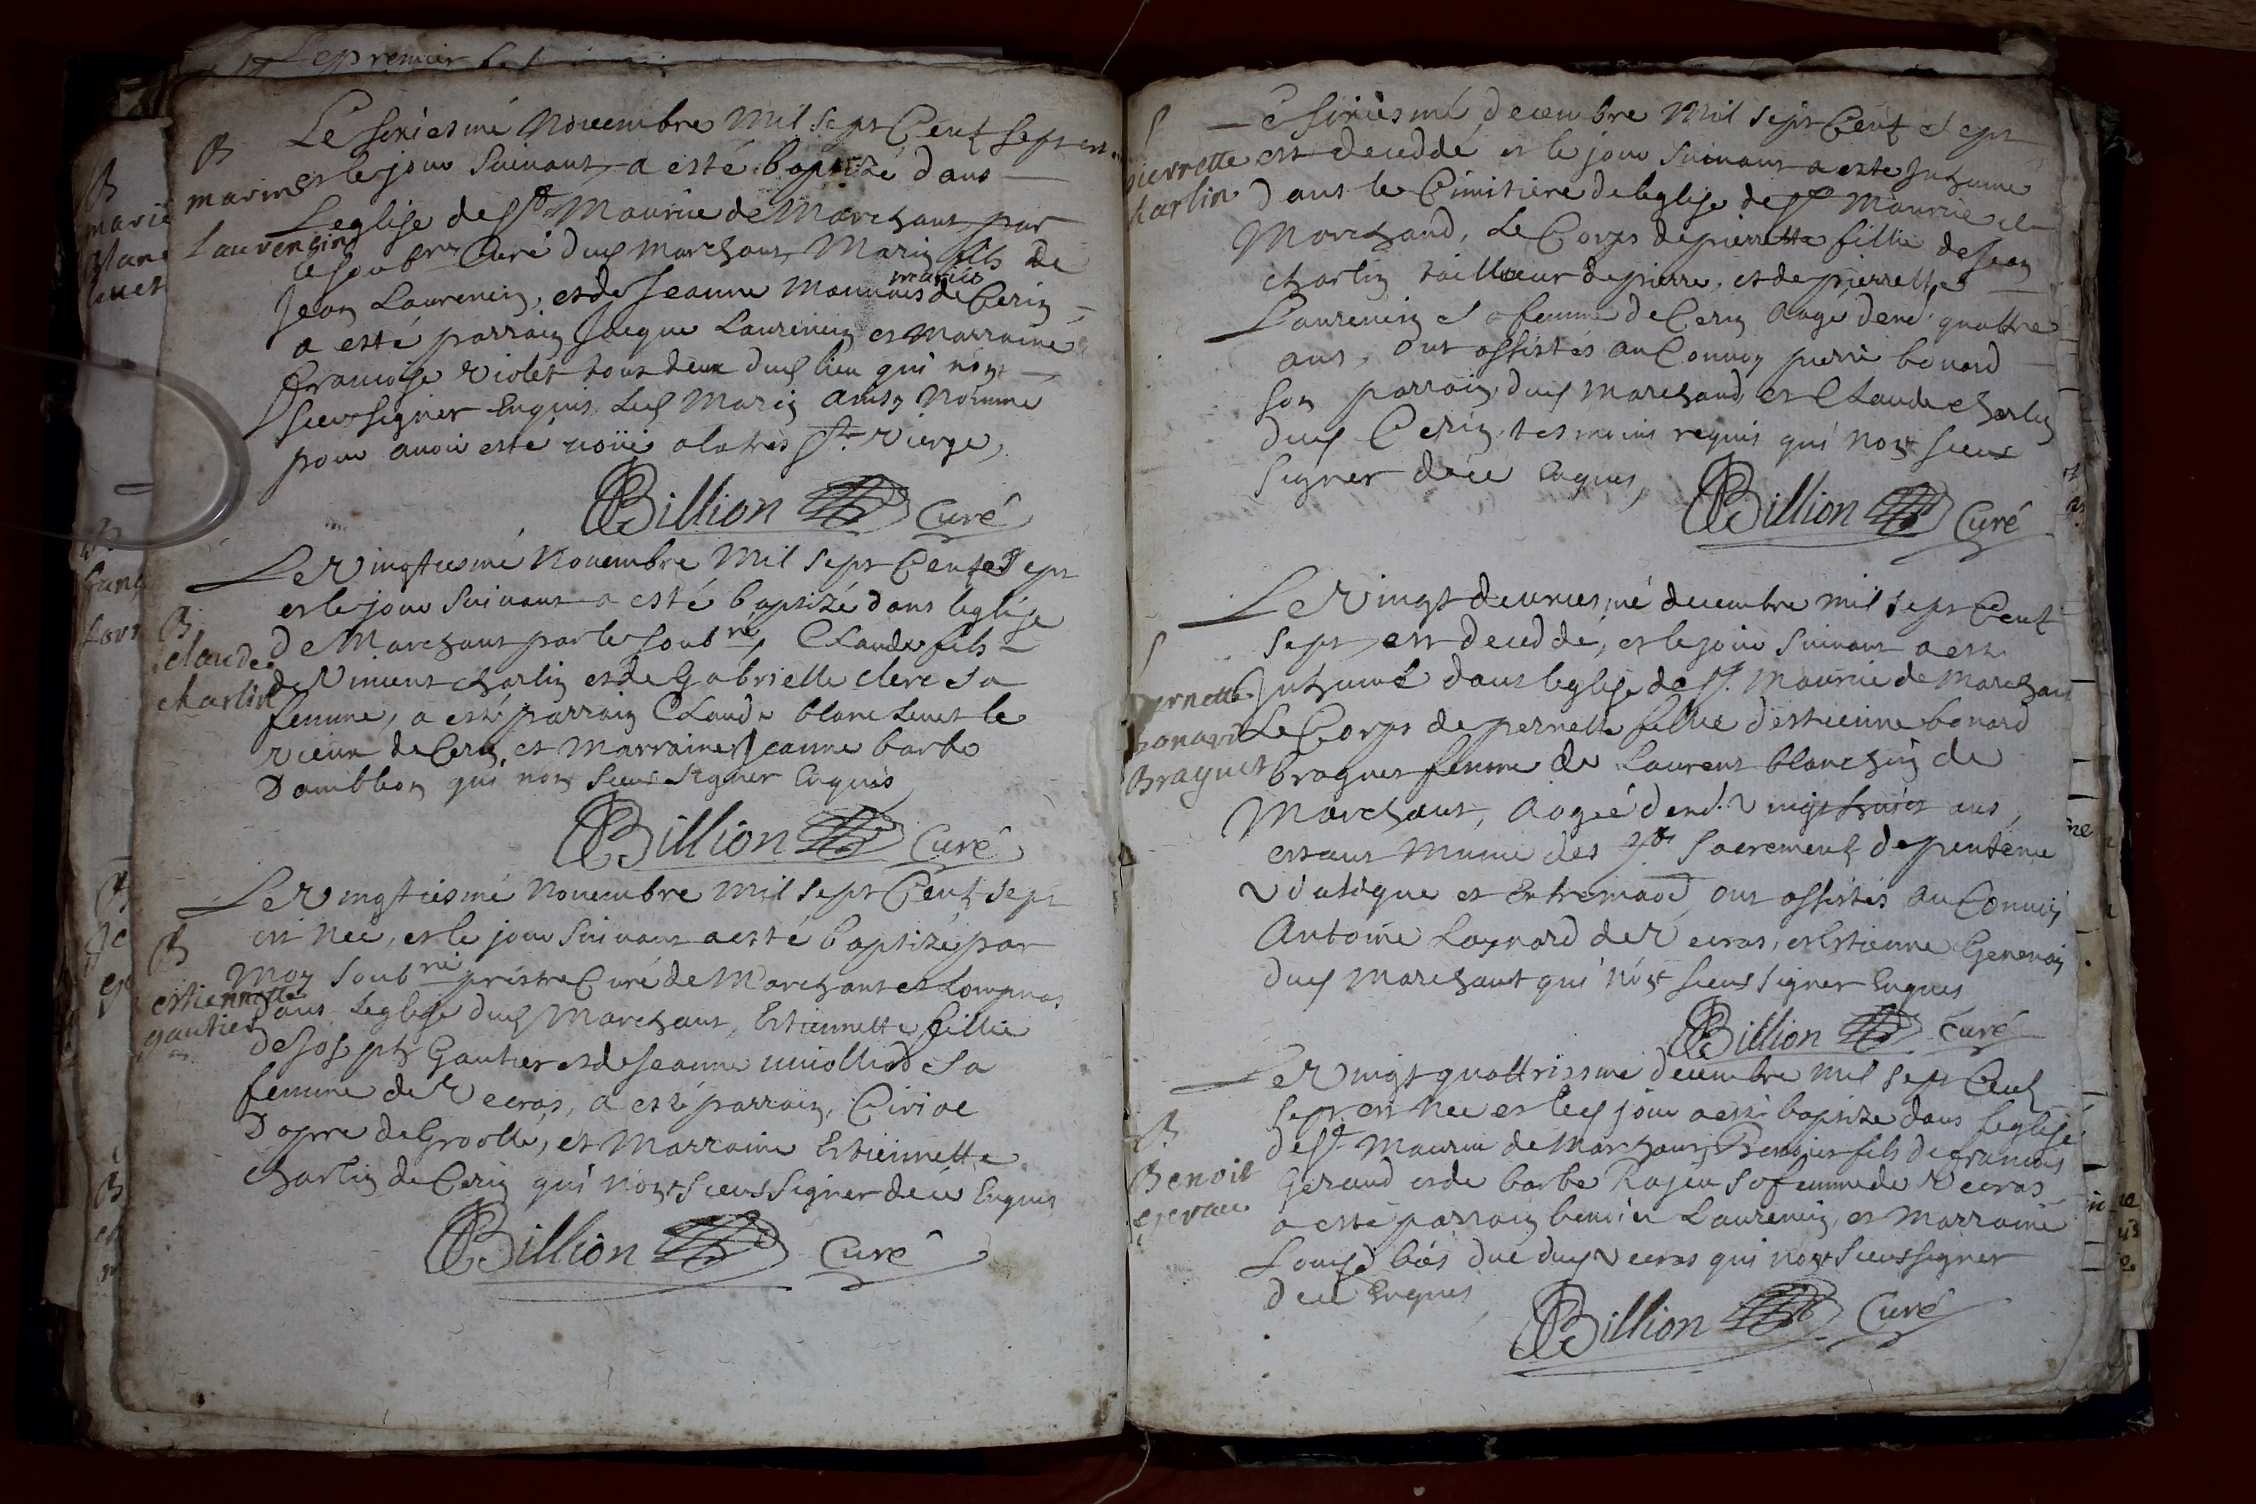 Le premier
B
marin
Laurencin
Le siziesme Novembre Mil sept Cent sept est
et le jour suivant a esté baptizé dans
Leglise de St Maurice de Marchant par
le soubné Curé dud Marchant, Marin fils de
Jean Laurencin, et de Jeanne de Cerin
a esté parrain Jacque Laurencin et Marraine
francoise violet tous deux dud lieu qui nont
sceu signer Enquis Led Marin ainsy Nommé
pour avoir esté voüé a la tres Ste vierge,
Billion Curé
B
claude
charlin
Le Vingtiesme Novembre Mil sept Cent sept
et le jour suivant a esté baptizé dans leglise
de Marchant par le soubné, Claude fils
de Vincent charlin et de Gabrielle clerc sa
femme, a esté parrain Claude blanc Levet le
vieux de Cerin et Marraine Jeanne barbe
Damblion qui nont sceu signer Enquis
Billion Curé
B
estiennette
gautier
Le Vingtiesme Novembre Mil sept Cent sept
est Nee, et le jour suivant a esté baptizée par
Moy soubné prestre Curé de Marchant et Lompnas
dans Leglise dud Marchant, Estiennette fillie
de Joseph Gautier et de Jeanne sa
femme de Vecras, a esté parrain, Civiac
Dapvre de Groollé, et Marraine Estiennette
charlin de Cerin qui nont sceus signer de ce Enquis
Billion Curé
S
pierrette
charlin
Le siziesme decembre Mil sept Cent sept
est decedde et le jour suivant a esté Inhumé
dans le Cimitiere de leglise de St Maurice de
Marchand, Le Corps de pierrette fillie de Jean
charlin tailleur de pierre, et de pierrette
Laurencin sa femme de Cerin Aagé denv. quattre
ans, Ont assistés au Convoy pierre bonard
son parrain dud Marchand et Claude charlin
dud Cerin tesmoins requis qui nont sceus
signer de ce Enquis,
Billion Curé
S
pernette
bonard
Braguet
Le Vingt deuxiesme decembre mil sept Cent
sept est decedde, et le jour suivant a esté
Inhumé dans leglise de St Maurice de Marchant
Le Corps de pernette fillie destienne bonard
braguet femme de Laurent blanchin de
Marchant, Aagée denv. Vingt huict ans,
estant Munie des Sts Sacrements de penitence
Viatique et Extremaon, ont assistés au Convoy
Antoine Laynard de Vecras, et Estienne Genevay
dud Marchant qui nont sceus signer Enquis
Billion Curé
B
Benoit
gerau
Le Vingt quattriesme decembre mil sept Cent
sept est Nee et led jour a esté baptize dans leglise
de St Maurice de Marchant, Benoit fils de francois
Geraud et de barbe Rajeu sa femme de Vecras
a esté parrain benoit Laurencin, et Marraine
dud Vecras qui nont sceus signer
de ce Enquis
Billion Curé